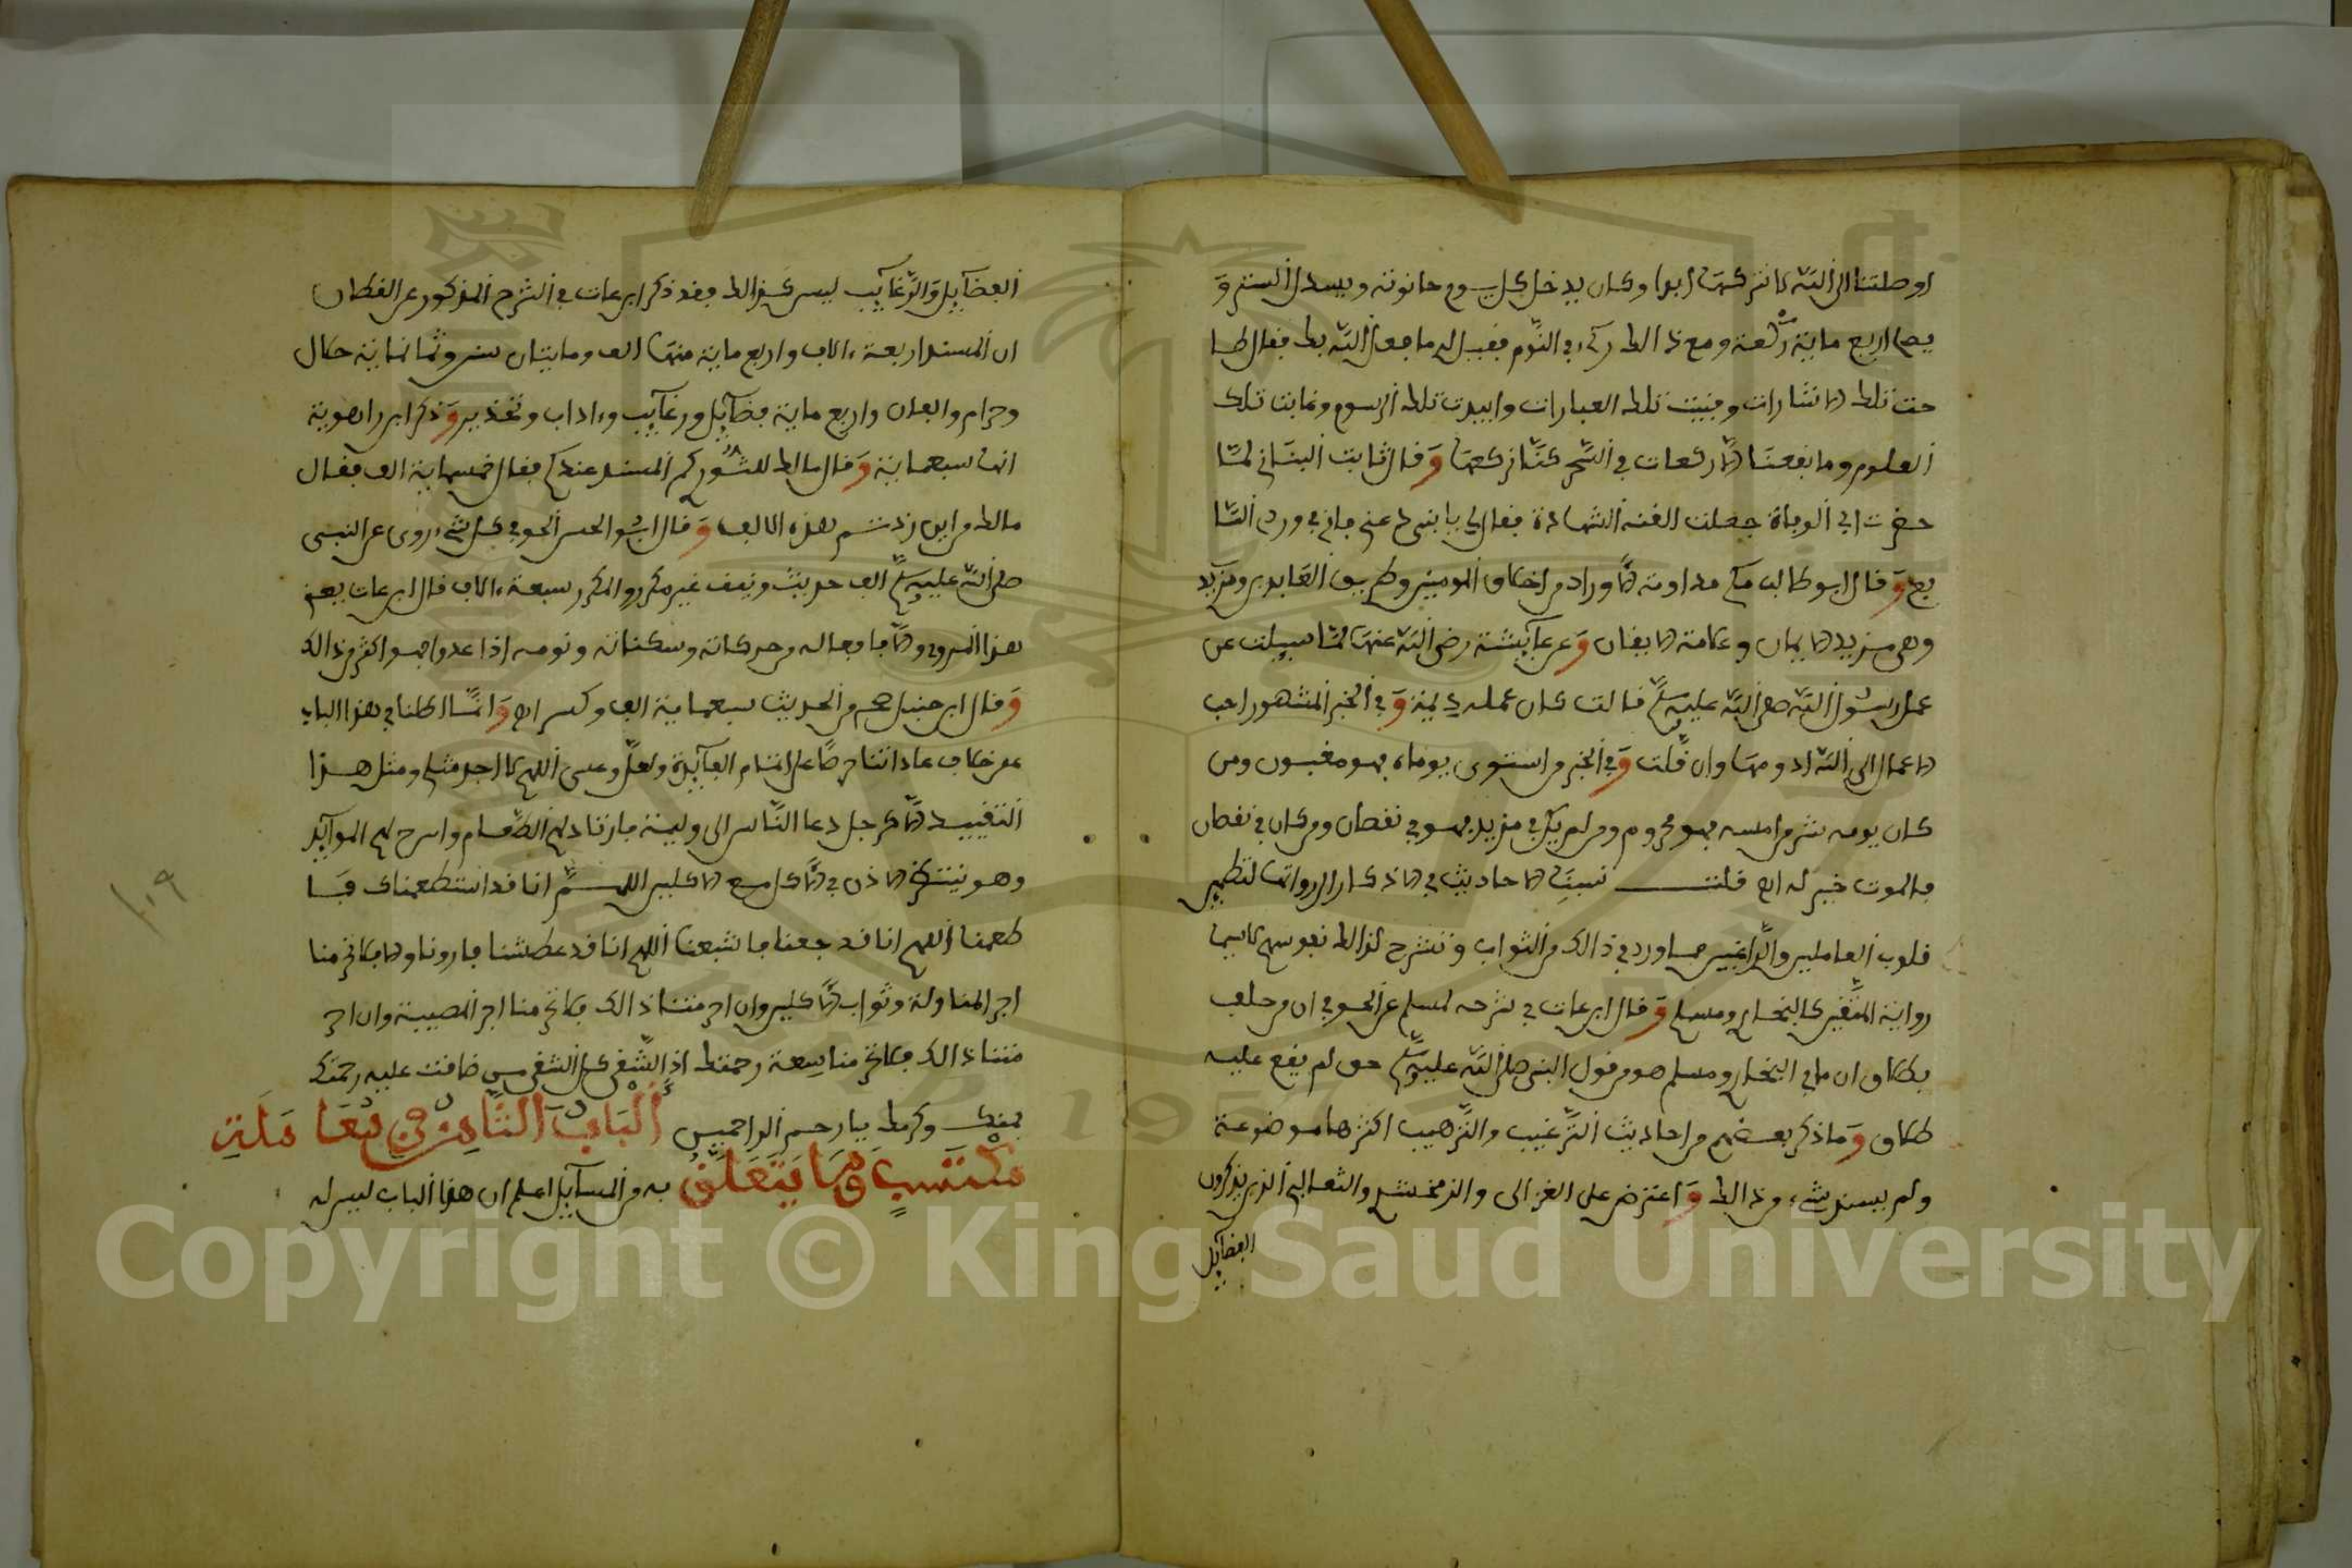 اوصلتنا الى الله لا نتركها ابدا وكان يدخل كل يوم حانوته ويسدل الستر و
يصلي اربع ماية ركعة ومع ذالك ريء في النوم فقيل له ما فعل الله بك فقال طا
حت تلك الاشارات وفنيت تلك العبارات وابيدت تلك الرسوم وغابت تلك
العلوم وما نفعنا الا ركعات في السحر كنا نركعها وقال ثابت البناني لما
حضرت ابي الوفاة جعلت القنه الشهادة فقال لي يا بني دعني فاني في وردي السا
بع وقال ابو طالب مكي مداومة الاوراد من اخلاق المومنين وطريق العابدين ومزيد
وهي مزيد الايمان وعلامة الايقان وعن عايشة رضي الله عنها لما سيلت عن
عمل رسول الله صلى الله عليه وسلم قالت كان عمله ديمة وفي الخبر المشهور احب
الاعمال الى الله ادومها وان قلت وفي الخبر من استوى يوماه فهو مغبون ومن
كان يومه شر من امسه فهو محروم ومن لم يكن في مزيد فهو في نقصان ومن كان في نقصان
فالموت خير له اه قلت نسبت الاحاديث في الاذكار الى رواتها لتطمين
قلوب العاملين والراغبين مما ورد في ذالك من الثواب وتنشرح لذالك نفوسهم لا سيما
رواية المتقين كالبخاري ومسلم وقال ابن عات في شرحه لمسلم عن الجوفي ان من حلف
بطلاق ان ما في البخاري ومسلم هو من قول النبي صلى الله عليه وسلم حق لم يقع عليه
طلاق وما ذكر بعضهم من احاديث الترغيب والترهيب اكثرها موضوعة
ولم يسند شيء من ذالك واعترض على الغزالي والزمخشري والثعالبي الذين يذكرون
الفضايل
الفضايل والرغايب ليس كذالك فقد ذكر ابن عات في الشرح المذكور عن القطان
ان المسند اربعة ءالاف واربع ماية منها الف ومايتان سنن وثمانماية حلال
وحرام والفان واربع ماية فضايل ورغايب وءاداب وتحذير وذكر ابن راهوية
انها سبعماية وقال مالك للثوري كم المسند عندكم فقال خمسماية الف فقال
مالك من اين زدتم هذه الالف وقال ابو الحسن الجوفي كل شيء روي عن النبي
صلى الله عليه وسلم الف حديث ونيف غير مكرر والمكرر سبعة ءالاف قال ابن عات يعني
هذا المروي والا فافعاله وحركاته وسكناته ونومه اذا عدوا فهو اكثر من ذالك
وقال ابن حنبل صح من الحديث سبعماية الف وكسر اه وانما اطلنا في هذا الباب
على خلاف عاداتنا حرصا على اتمام الفايدة ولعل وعسى اللهم لا اجد مثلي ومثل هذا
التقييد الا كرجل دعا الناس الى وليمة فارتاد لهم الطعام واسرح لهم الموايد
وهو ينتظر الاذن في الاكل مع الاكلين اللهم انا قد استطعمناك فا
طعمنا اللهم انا قد جعنا فاشبعنا اللهم انا قد عطشنا فاروناولا تحرمنا
اجر المناولة وثواب الاكلين وان احرمتنا ذالك فلا تحرمنا اجر المصيبة وان احر
متنا ذالك فلا تحرمنا سعة رحمتك اذ الشقي كل الشقي من ضاقت عليه رحمتك
بمنك وكرمك يا ارحم الراحمين الباب الثامن في معاملة
مكتسب وما يتعلق به من المسايل اعلم ان هذا الباب ليس له
١٠٩
Copyright © King Saud University
1957